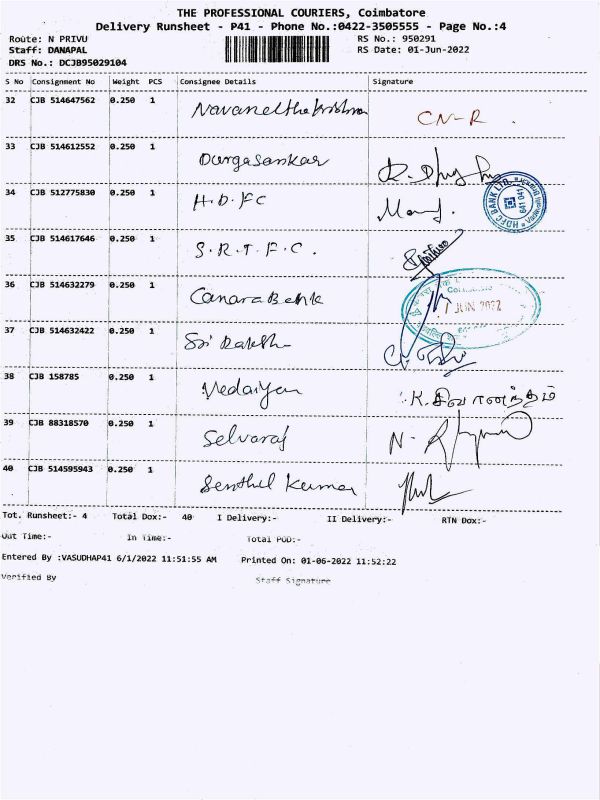 THE PROFESSIONAL COURIERS, Coimbatore
Delivery Runsheet - P41 - Phone No.:0422-3505555 - Page No.:4
Route: N PRIVU RS No.: 950291
Staff: DANAPAL RS Date: 01-Jun-2022
DRS No.: DCJB95029104
S No Consignment No Weight PCS Consignee Details Signature
32 CJB 514647562 0.250 1 Navaneethakrishnan CN-R
33 CJB 514612552 0.250 1 Durgasankar
34 CJB 512775830 0.250 1 H.D.FC
HDFC BANK LTD.
641 041
35 CJB 514617646 0.250 1 S.R.T.F.C.
36 CJB 514632279 0.250 1 Canara Bank
JUN 2022
37 CJB 514632422 0.250 1 Sri Raksha
38 CJB 158785 0.250 1 Vedaiyan
39 CJB 88318570 0.250 1 Selvaraj
40 CJB 514595943 0.250 1 Senthil Kumar
Tot. Runsheet:- 4 Total Dox:- 40 I Delivery:- II Delivery:- RTN Dox:-
Out Time:- In Time:- Total POD:-
Entered By :VASUDHAP41 6/1/2022 11:51:55 AM Printed On: 01-06-2022 11:52:22
Verified By Staff Signature